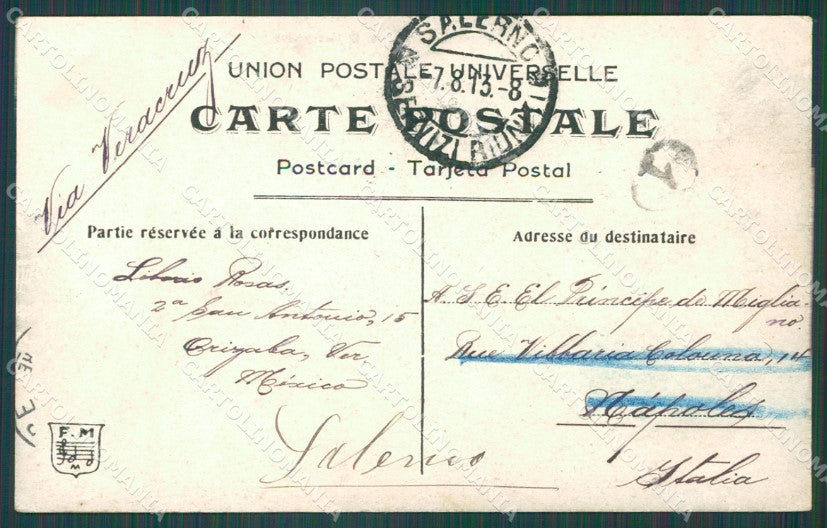 UNION POSTALE UNIVERSELLE
CARTE POSTALE
Postcard - Tarjeta Postal
SALERNO
7.8.13.-8
SERVIZI RIUNITI
Via Veracruz
Partie réservée á la correspondance
Liborio Rosas.
2ª San Antonio, 15
Orizaba, Ver.
México
Salerno
Adresse du destinataire
A. S. E. El Príncipe de Miglia-
no.
Rue Vittoria Colonna, 14
Nápoles
Italia
F. M
M
CARTOLINOMANIA